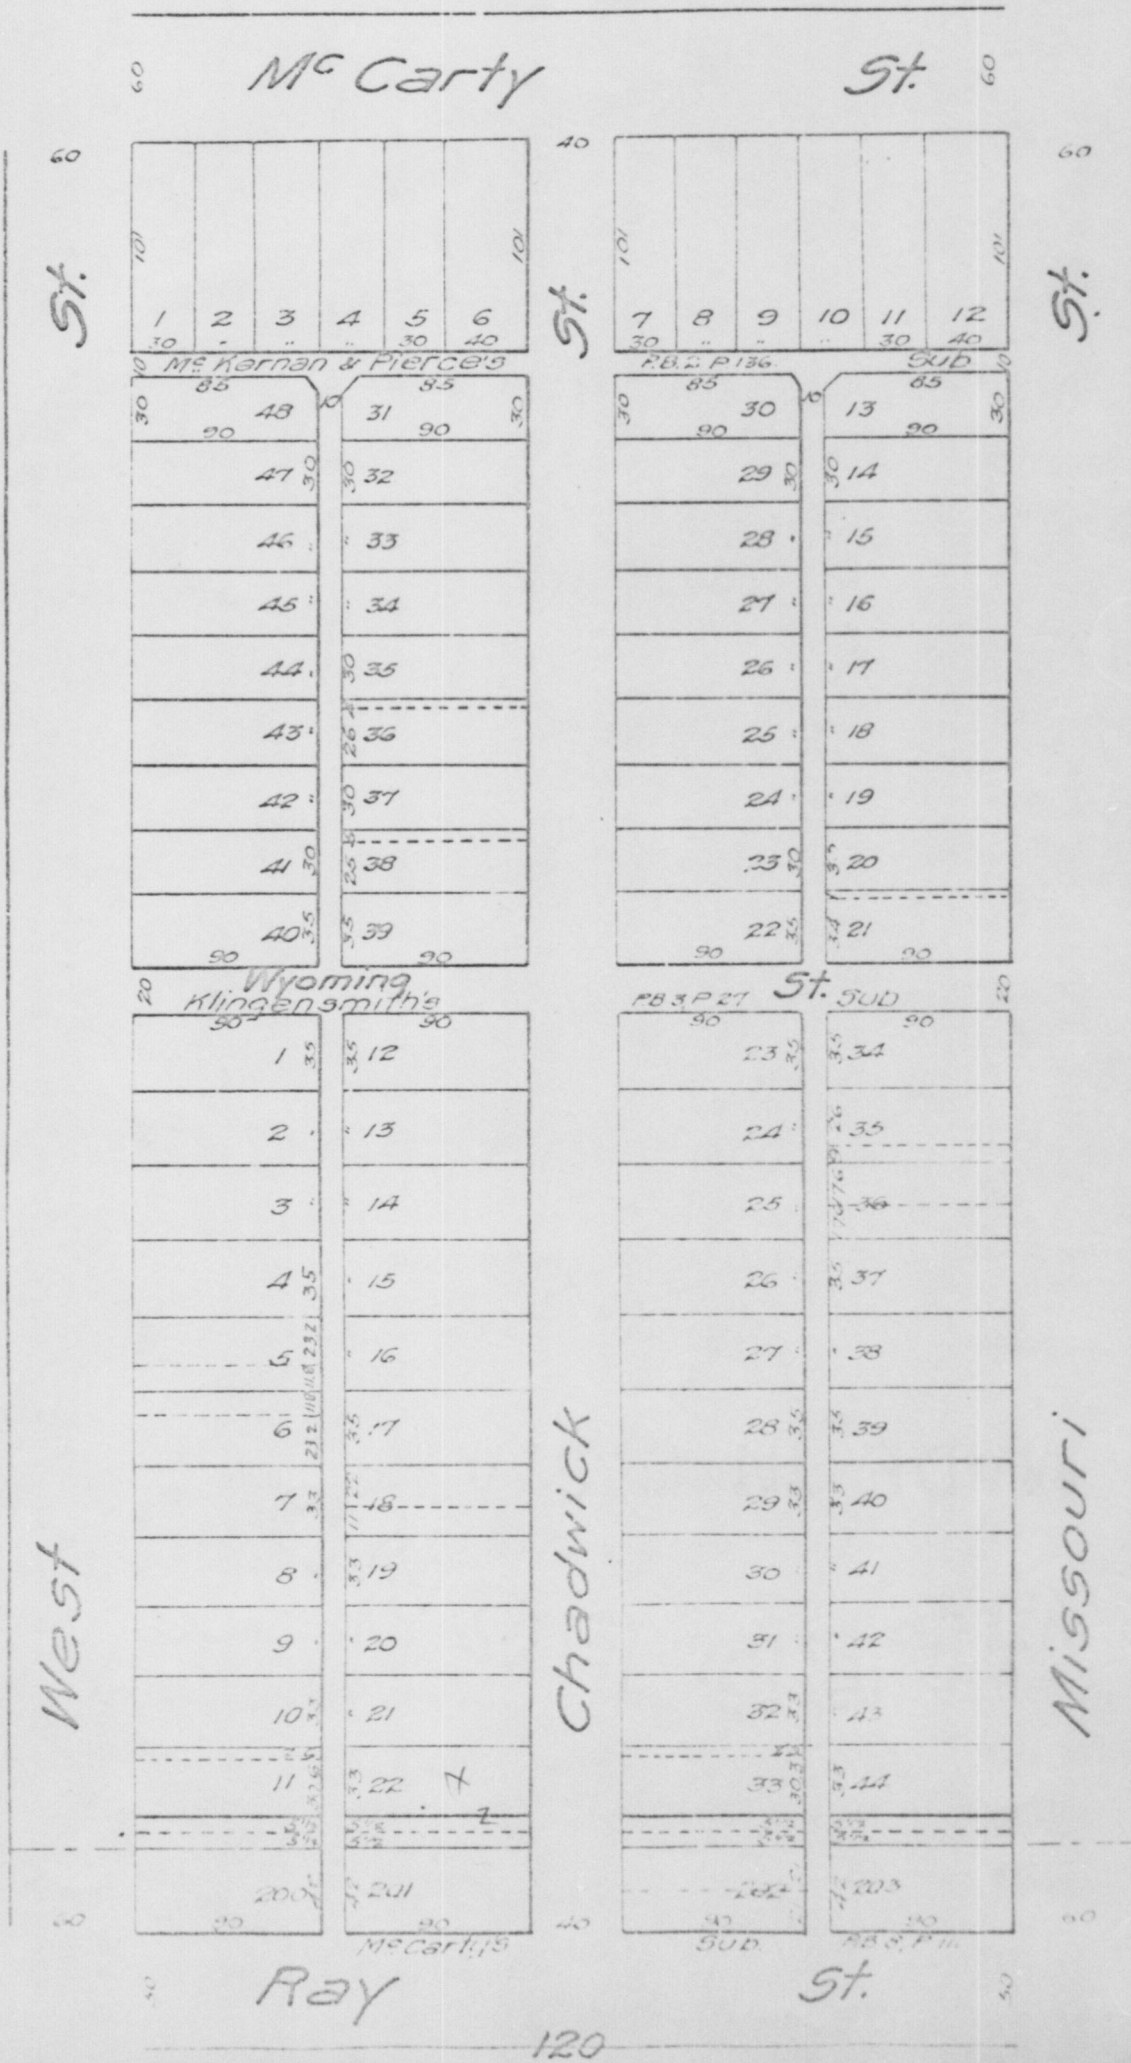 60 Mc Carty St. 60
60 40 60
St. St. St.
101 101 101 101
1 2 3 4 5 6 7 8 9 10 11 12
30 " " " 30 40 30 " " " 30 40
10 Mc Karnan & Pierce's P.B. 2 P 136 Sub 10
85 85 85 85
30 48 10 31 30 30 30 10 13 30
90 90 90 90
47 30 30 32 29 30 30 14
46 " " 33 28 " " 15
45 " " 34 27 " " 16
44 " 30 35 26 " " 17
43 " 26 36 25 " " 18
42 " 30 37 24 " " 19
41 30 5 25 38 23 30 35 20
40 35 35 39 22 35 1 34 21
90 90 90 90
20 Wyoming St. 20
Klingensmith's P.B 3, P 27 Sub
90 90 90 90
1 35 35 12 23 35 35 34
2 " " 13 24 " 26 35
3 " " 14 25 9 36
4 35 " 15 26 " 35 37
5 232 " 16 27 " " 38
6 232 35 17 28 35 35 39
7 33 22 11 18 29 33 33 40
8 " 33 19 30 " " 41
9 " " 20 31 " " 42
10 33 " 21 32 33 " 43
11 33 22 33 303 33 44
5½ 5½
200 201 202 203
90 90 90 90
60 40 60
McCarty's Sub. P.B 3, P 111
West Chadwick Missouri
50 Ray St. 50
120